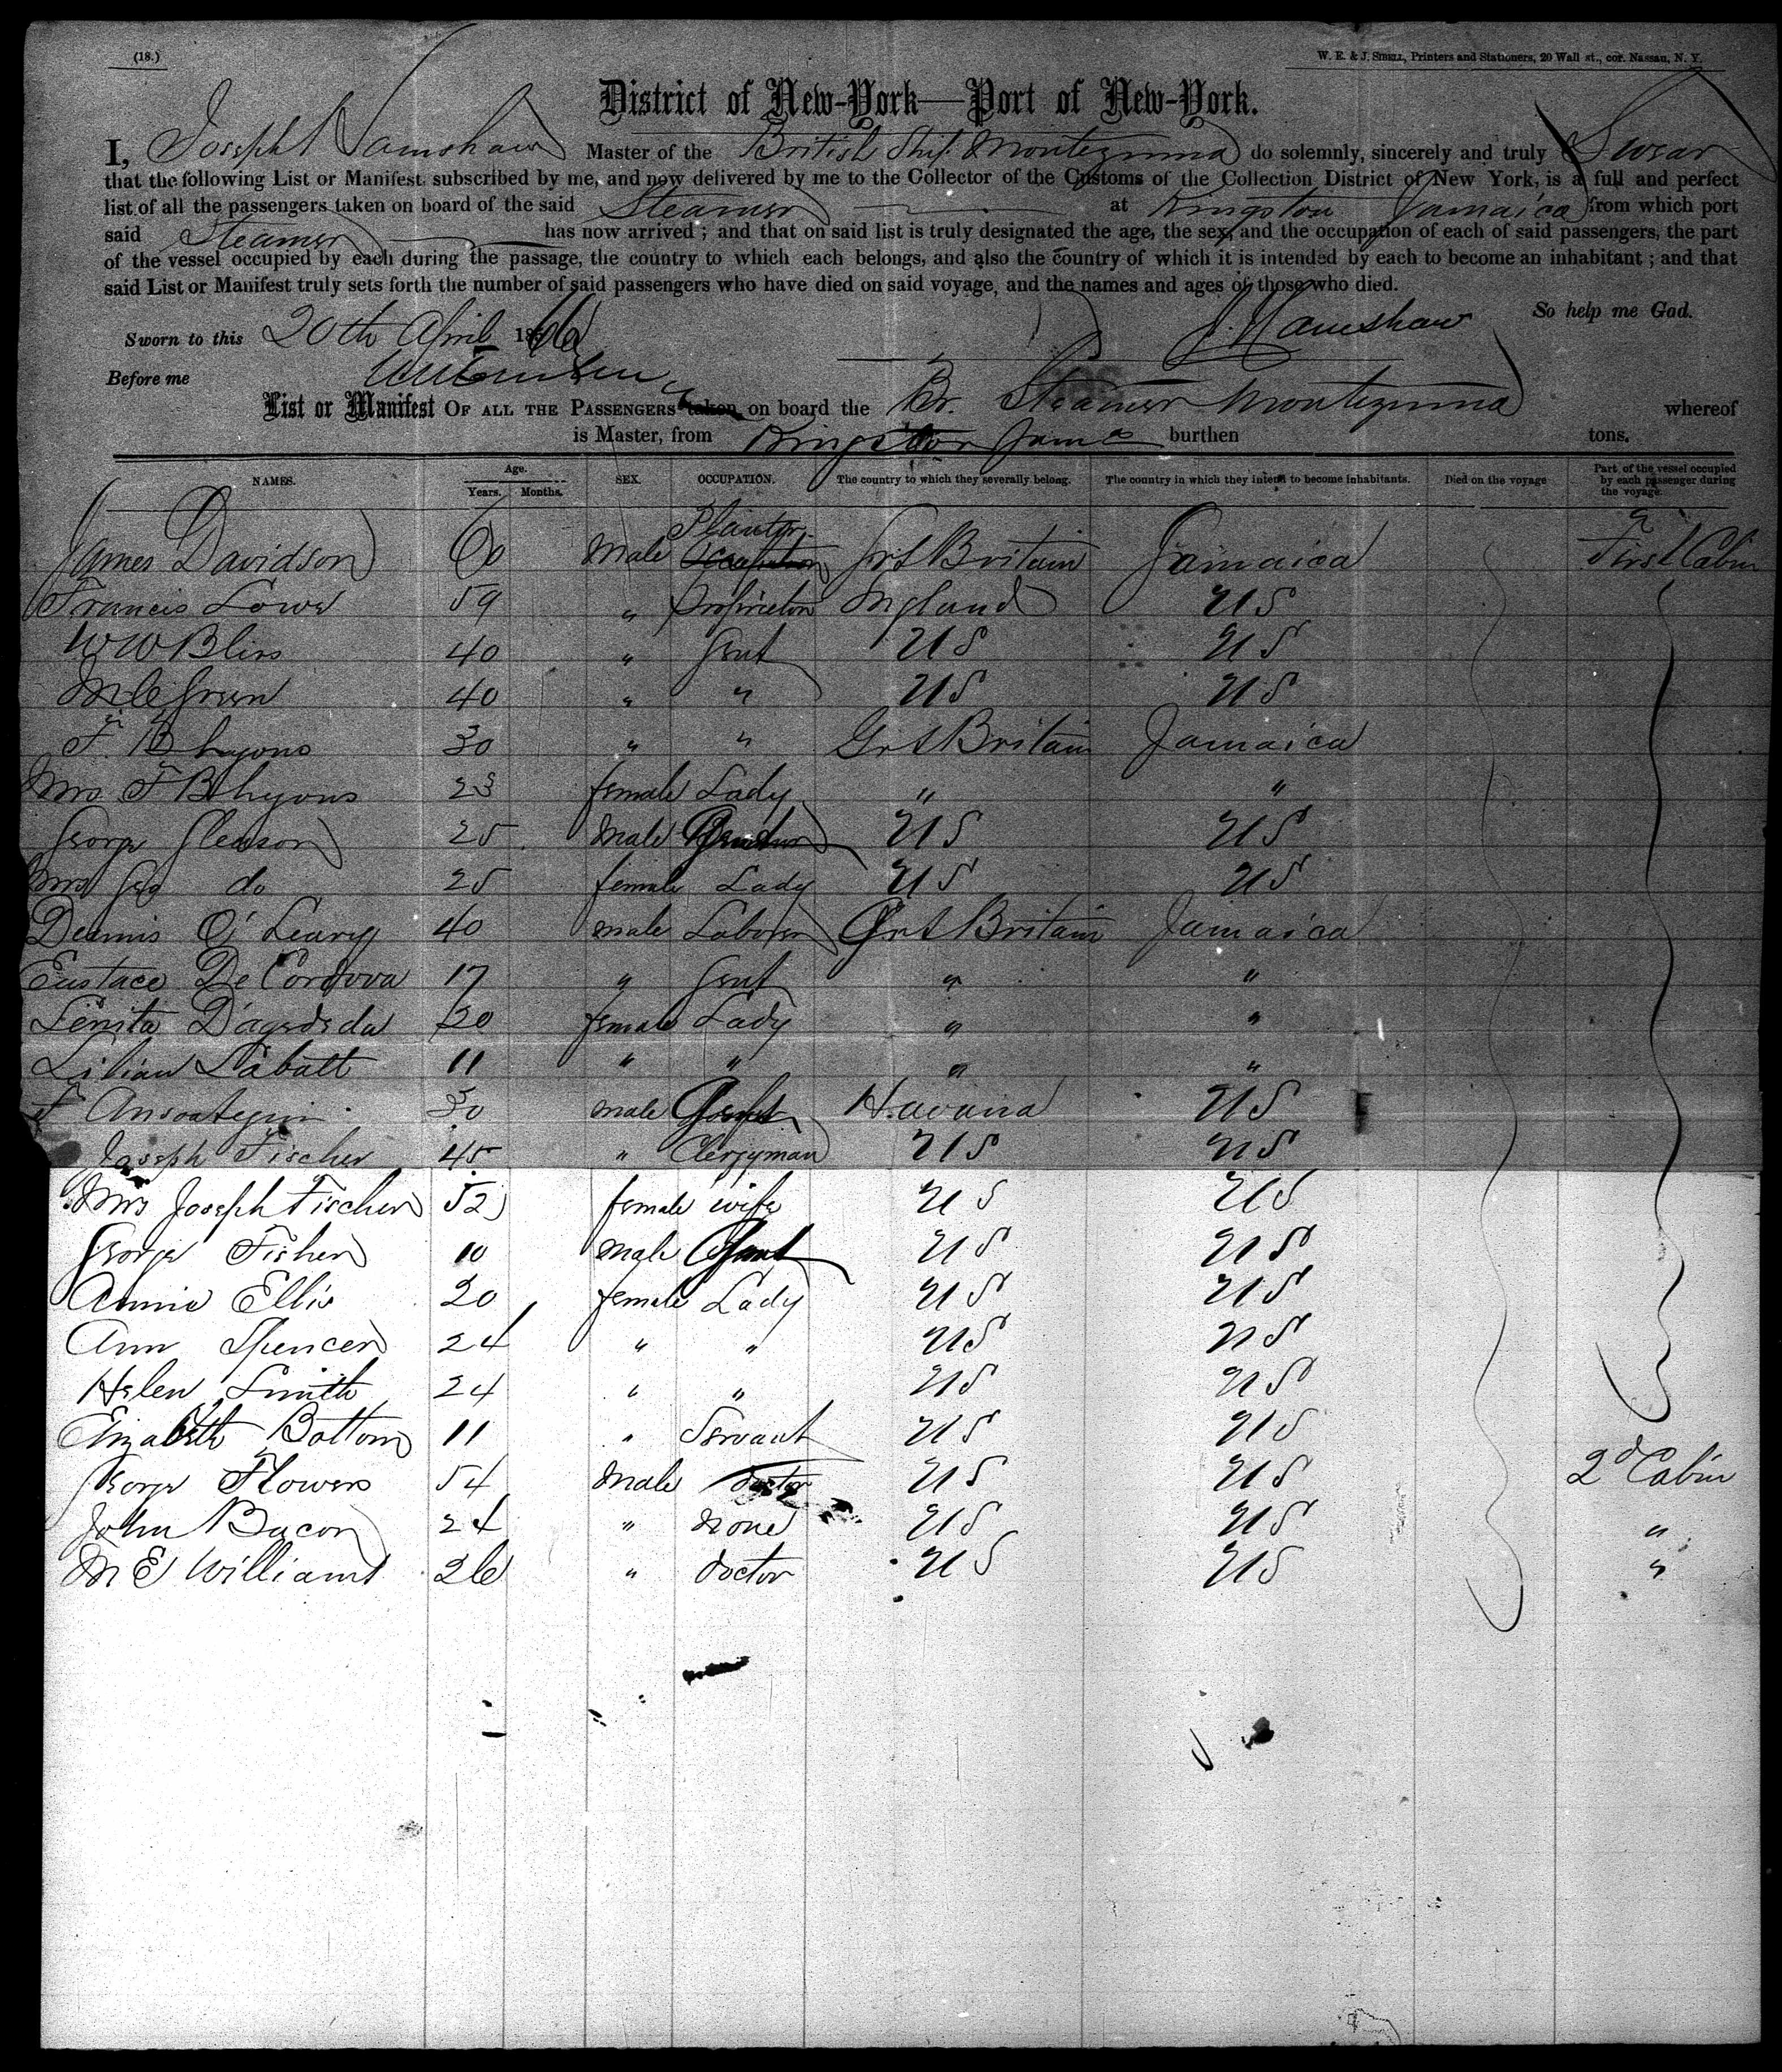 (18.)
W. E. & J. SIBELL, Printers and Stationers, 20 Wall st., cor. Nassau, N. Y.
District of New-York—Port of New-York.
I, Joseph Hamshaw Master of the British Ship Montezuma do solemnly, sincerely and truly Swear
that the following List or Manifest, subscribed by me, and now delivered by me to the Collector of the Customs of the Collection District of New York, is a full and perfect
list of all the passengers taken on board of the said Steamer at Kingston Jamaica from which port
said Steamer has now arrived; and that on said list is truly designated the age, the sex, and the occupation of each of said passengers, the part
of the vessel occupied by each during the passage, the country to which each belongs, and also the country of which it is intended by each to become an inhabitant; and that
said List or Manifest truly sets forth the number of said passengers who have died on said voyage, and the names and ages of those who died.
So help me God.
Sworn to this 20th April 1866 J. Hamshaw
Before me
List or Manifest OF ALL THE PASSENGERS taken on board the Br. Steamer Montezuma whereof
is Master, from Kingston Jama burthen tons.
NAMES. Age. Years. Months. SEX. OCCUPATION. The country to which they severally belong. The country in which they intend to become inhabitants. Died on the voyage Part of the vessel occupied by each passenger during the voyage.
James Davidson 60 Male Planter Grt Britain Jamaica First Cabin
Francis Lowe 59 " Proprietor England US
W W Bliss 40 " Gent US US
M C Green 40 " " US US
F. B Lyons 30 " " Grt Britain Jamaica
Mrs F B Lyons 23 female Lady " "
George Gleason 25 Male US US
Mrs Geo do 25 female Lady US US
Dennis O'Leary 40 male Laborer Grt Britain Jamaica
Eustace De Cordova 17 " Gent " "
30 female Lady " "
Lilian Labatt 11 " " " "
30 male Gent Havana US
Joseph Fischer 45 " Clergyman US US
Mrs Joseph Fischer 52 female wife US US
George Fisher 10 male Gent US US
Annie Ellis 20 female Lady US US
Ann Spencer 24 " " US US
Helen Smith 24 " " US US
Elizabeth Bottom 11 " Servant US US
George Flowers 54 Male doctor US US 2d Cabin
John Bacon 24 " none US US "
M E Williams 26 " doctor US US "